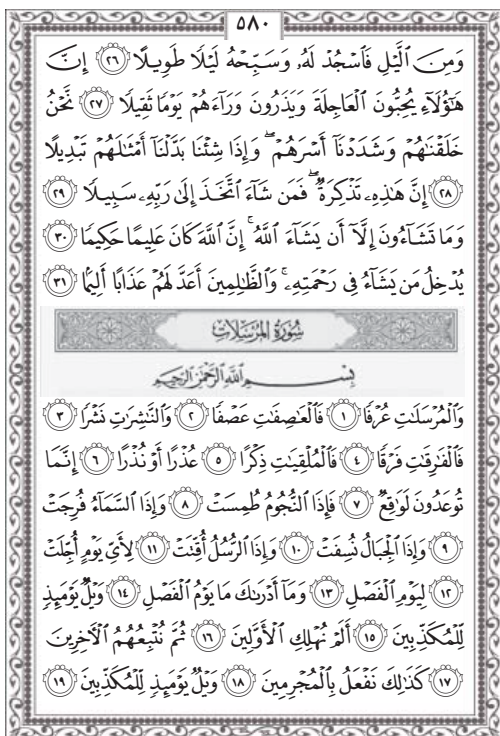 ٥٨٠
وَمِنَ ٱلَّيۡلِ فَٱسۡجُدۡ لَهُۥ وَسَبِّحۡهُ لَيۡلٗا طَوِيلًا ٢٦ إِنَّ
هَٰٓؤُلَآءِ يُحِبُّونَ ٱلۡعَاجِلَةَ وَيَذَرُونَ وَرَآءَهُمۡ يَوۡمٗا ثَقِيلٗا ٢٧ نَّحۡنُ
خَلَقۡنَٰهُمۡ وَشَدَدۡنَآ أَسۡرَهُمۡۖ وَإِذَا شِئۡنَا بَدَّلۡنَآ أَمۡثَٰلَهُمۡ تَبۡدِيلًا
٢٨ إِنَّ هَٰذِهِۦ تَذۡكِرَةٞۖ فَمَن شَآءَ ٱتَّخَذَ إِلَىٰ رَبِّهِۦ سَبِيلٗا ٢٩
وَمَا تَشَآءُونَ إِلَّآ أَن يَشَآءَ ٱللَّهُۚ إِنَّ ٱللَّهَ كَانَ عَلِيمًا حَكِيمٗا ٣٠
يُدۡخِلُ مَن يَشَآءُ فِي رَحۡمَتِهِۦۚ وَٱلظَّٰلِمِينَ أَعَدَّ لَهُمۡ عَذَابًا أَلِيمَۢا ٣١
سُورَةُ المُرْسَلَاتِ
بِسۡمِ ٱللَّهِ ٱلرَّحۡمَٰنِ ٱلرَّحِيمِ
وَٱلۡمُرۡسَلَٰتِ عُرۡفٗا ١ فَٱلۡعَٰصِفَٰتِ عَصۡفٗا ٢ وَٱلنَّٰشِرَٰتِ نَشۡرٗا ٣
فَٱلۡفَٰرِقَٰتِ فَرۡقٗا ٤ فَٱلۡمُلۡقِيَٰتِ ذِكۡرًا ٥ عُذۡرًا أَوۡ نُذۡرًا ٦ إِنَّمَا
تُوعَدُونَ لَوَٰقِعٞ ٧ فَإِذَا ٱلنُّجُومُ طُمِسَتۡ ٨ وَإِذَا ٱلسَّمَآءُ فُرِجَتۡ
٩ وَإِذَا ٱلۡجِبَالُ نُسِفَتۡ ١٠ وَإِذَا ٱلرُّسُلُ أُقِّتَتۡ ١١ لِأَيِّ يَوۡمٍ أُجِّلَتۡ
١٢ لِيَوۡمِ ٱلۡفَصۡلِ ١٣ وَمَآ أَدۡرَىٰكَ مَا يَوۡمُ ٱلۡفَصۡلِ ١٤ وَيۡلٞ يَوۡمَئِذٖ
لِّلۡمُكَذِّبِينَ ١٥ أَلَمۡ نُهۡلِكِ ٱلۡأَوَّلِينَ ١٦ ثُمَّ نُتۡبِعُهُمُ ٱلۡأٓخِرِينَ
١٧ كَذَٰلِكَ نَفۡعَلُ بِٱلۡمُجۡرِمِينَ ١٨ وَيۡلٞ يَوۡمَئِذٖ لِّلۡمُكَذِّبِينَ ١٩